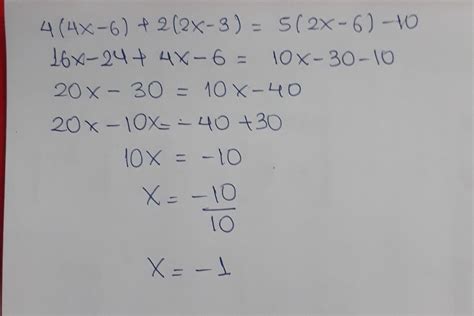 4(4x-6)+2(2x-3) = 5(2x-6)-10
16x-24+4x-6 = 10x-30-10
20x-30 = 10x-40
20x-10x=-40+30
10x = -10
x = -10/10
x = -1